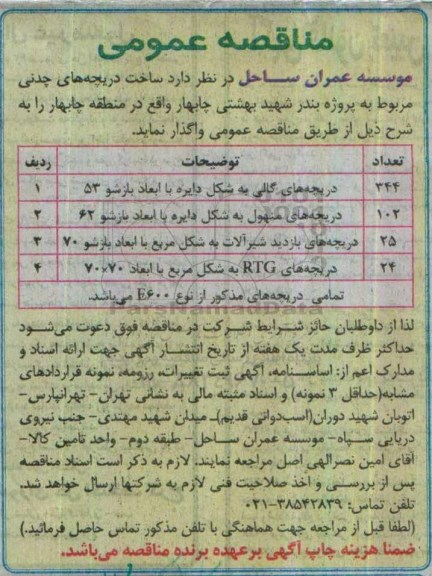 مناقصه عمومی
موسسه عمران ساحل در نظر دارد ساخت دریچه‌های چدنی
مربوط به پروژه بندر شهید بهشتی چابهار واقع در منطقه چابهار را به
شرح ذیل از طریق مناقصه عمومی واگذار نماید.
ردیف توضیحات تعداد
۱ دریچه‌های گالی به شکل دایره با ابعاد بازشو ۵۳ ۳۴۴
۲ دریچه‌های منهول به شکل دایره با ابعاد بازشو ۶۲ ۱۰۲
۳ دریچه‌های بازدید شیرآلات به شکل مربع با ابعاد بازشو ۷۰ ۲۵
۴ دریچه‌های RTG به شکل مربع با ابعاد ۷۰×۷۰ ۲۴
تمامی دریچه‌های مذکور از نوع E۶۰۰ می‌باشد.
لذا از داوطلبان حائز شرایط شرکت در مناقصه فوق دعوت می‌شود
حداکثر ظرف مدت یک هفته از تاریخ انتشار آگهی جهت ارائه اسناد و
مدارک اعم از: اساسنامه، آگهی ثبت تغییرات، رزومه، نمونه قراردادهای
مشابه(حداقل ۳ نمونه) و اسناد مثبته مالی به نشانی تهران- تهرانپارس-
اتوبان شهید دوران(اسب‌دوانی قدیم)- میدان شهید مهتدی- جنب نیروی
دریایی سپاه- موسسه عمران ساحل- طبقه دوم- واحد تامین کالا-
آقای امین نصرالهی اصل مراجعه نمایند. لازم به ذکر است اسناد مناقصه
پس از بررسی و اخذ صلاحیت فنی لازم به شرکتها ارسال خواهد شد.
تلفن تماس: ۳۸۵۴۲۸۳۹-۰۲۱
(لطفا قبل از مراجعه جهت هماهنگی با تلفن مذکور تماس حاصل فرمائید.)
ضمنا هزینه چاپ آگهی برعهده برنده مناقصه می‌باشد.
ParsNamadData